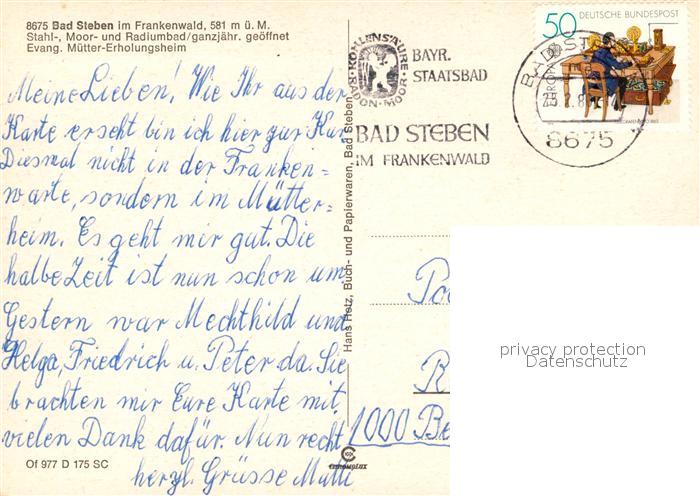 8675 Bad Steben im Frankenwald, 581 m ü. M.
Stahl-, Moor- und Radiumbad/ganzjähr. geöffnet
Evang. Mütter-Erholungsheim
Meine Lieben! Wie Ihr aus der
Karte erseht bin ich hier zur Kur
Diesmal nicht in der Franken=
warte, sondern im Mütter=
heim. Es geht mir gut. Die
halbe Zeit ist nun schon um.
Gestern war Mechthild und
Helga, Friedrich u. Peter da. Sie
brachten mir Eure Karte mit,
vielen Dank dafür. Nun recht
herzl. Grüsse Mutti
Of 977 D 175 SC
Hans Hotz, Buch- und Papierwaren, Bad Steben
KOHLENSÄURE
RADON-MOOR
BAYR.
STAATSBAD
BAD STEBEN
IM FRANKENWALD
50 DEUTSCHE BUNDESPOST
BAD STE
8675
Po
R
1000 Be
CHROMOLUX
privacy protection
Datenschutz